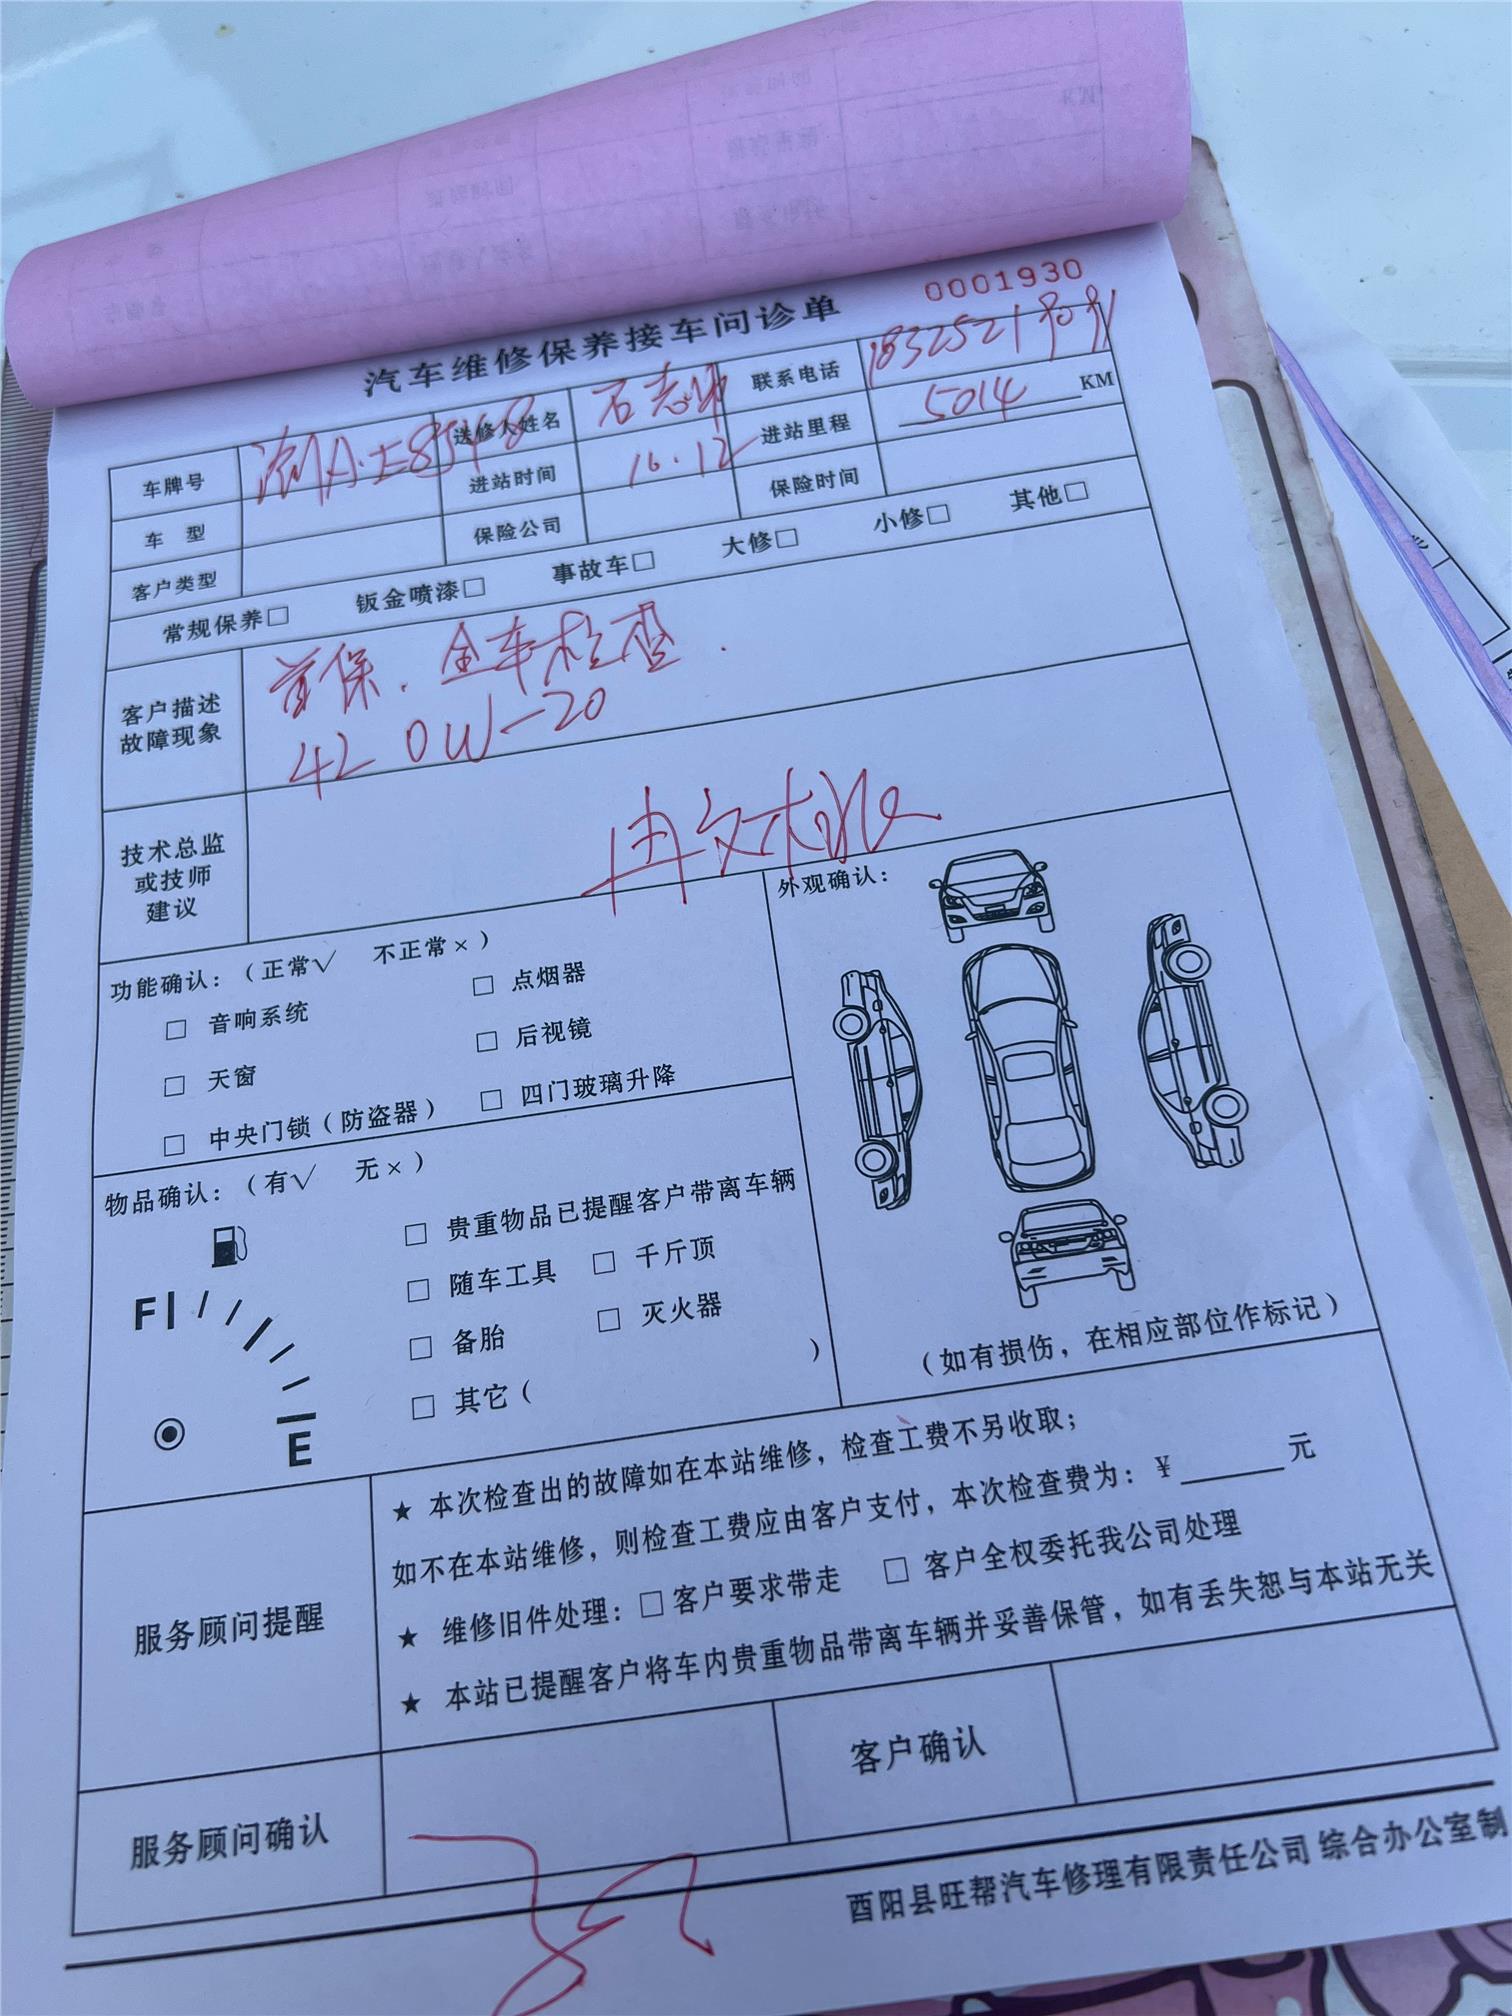 0001930
汽车维修保养接车问诊单
车牌号 送修人姓名 石志 联系电话
车 型 进站时间 10.12 进站里程 5014 KM
客户类型 保险公司 保险时间
常规保养□ 钣金喷漆□ 事故车□ 大修□ 小修□ 其他□
客户描述
故障现象
首保. 全车检查.
4L 0W-20
技术总监
或技师
建议
冉
功能确认：（正常√ 不正常×）
□ 音响系统 □ 点烟器
□ 天窗 □ 后视镜
□ 中央门锁（防盗器） □ 四门玻璃升降
外观确认：
（如有损伤，在相应部位作标记）
物品确认：（有√ 无×）
□ 贵重物品已提醒客户带离车辆
□ 随车工具 □ 千斤顶
□ 备胎 □ 灭火器
□ 其它（ ）
F
E
服务顾问提醒
★ 本次检查出的故障如在本站维修，检查工费不另收取；
如不在本站维修，则检查工费应由客户支付，本次检查费为：¥______元
★ 维修旧件处理：□客户要求带走 □ 客户全权委托我公司处理
★ 本站已提醒客户将车内贵重物品带离车辆并妥善保管，如有丢失恕与本站无关
服务顾问确认 客户确认
酉阳县旺帮汽车修理有限责任公司 综合办公室制